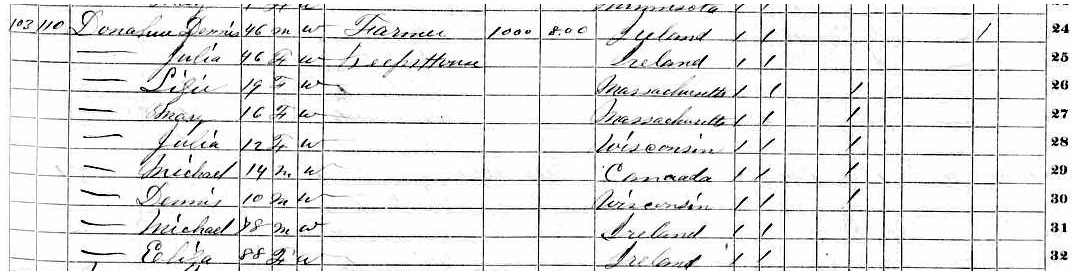 Minnesota
103 110 Donahue Dennis 46 M W Farmer 1000 800 Ireland 1 1 1 24
— Julia 46 F W Keeps House Ireland 1 1 25
— Lizie 19 F W Massachusetts 1 1 1 26
— Mary 16 F W Massachusetts 1 1 27
— Julia 12 F W Wisconsin 1 1 1 28
— Michael 14 M W Canada 1 1 1 29
— Dennis 10 M W Wisconsin 1 1 1 30
— Michael 78 M W Ireland 1 1 31
— Eliza 88 F W Ireland 1 1 32